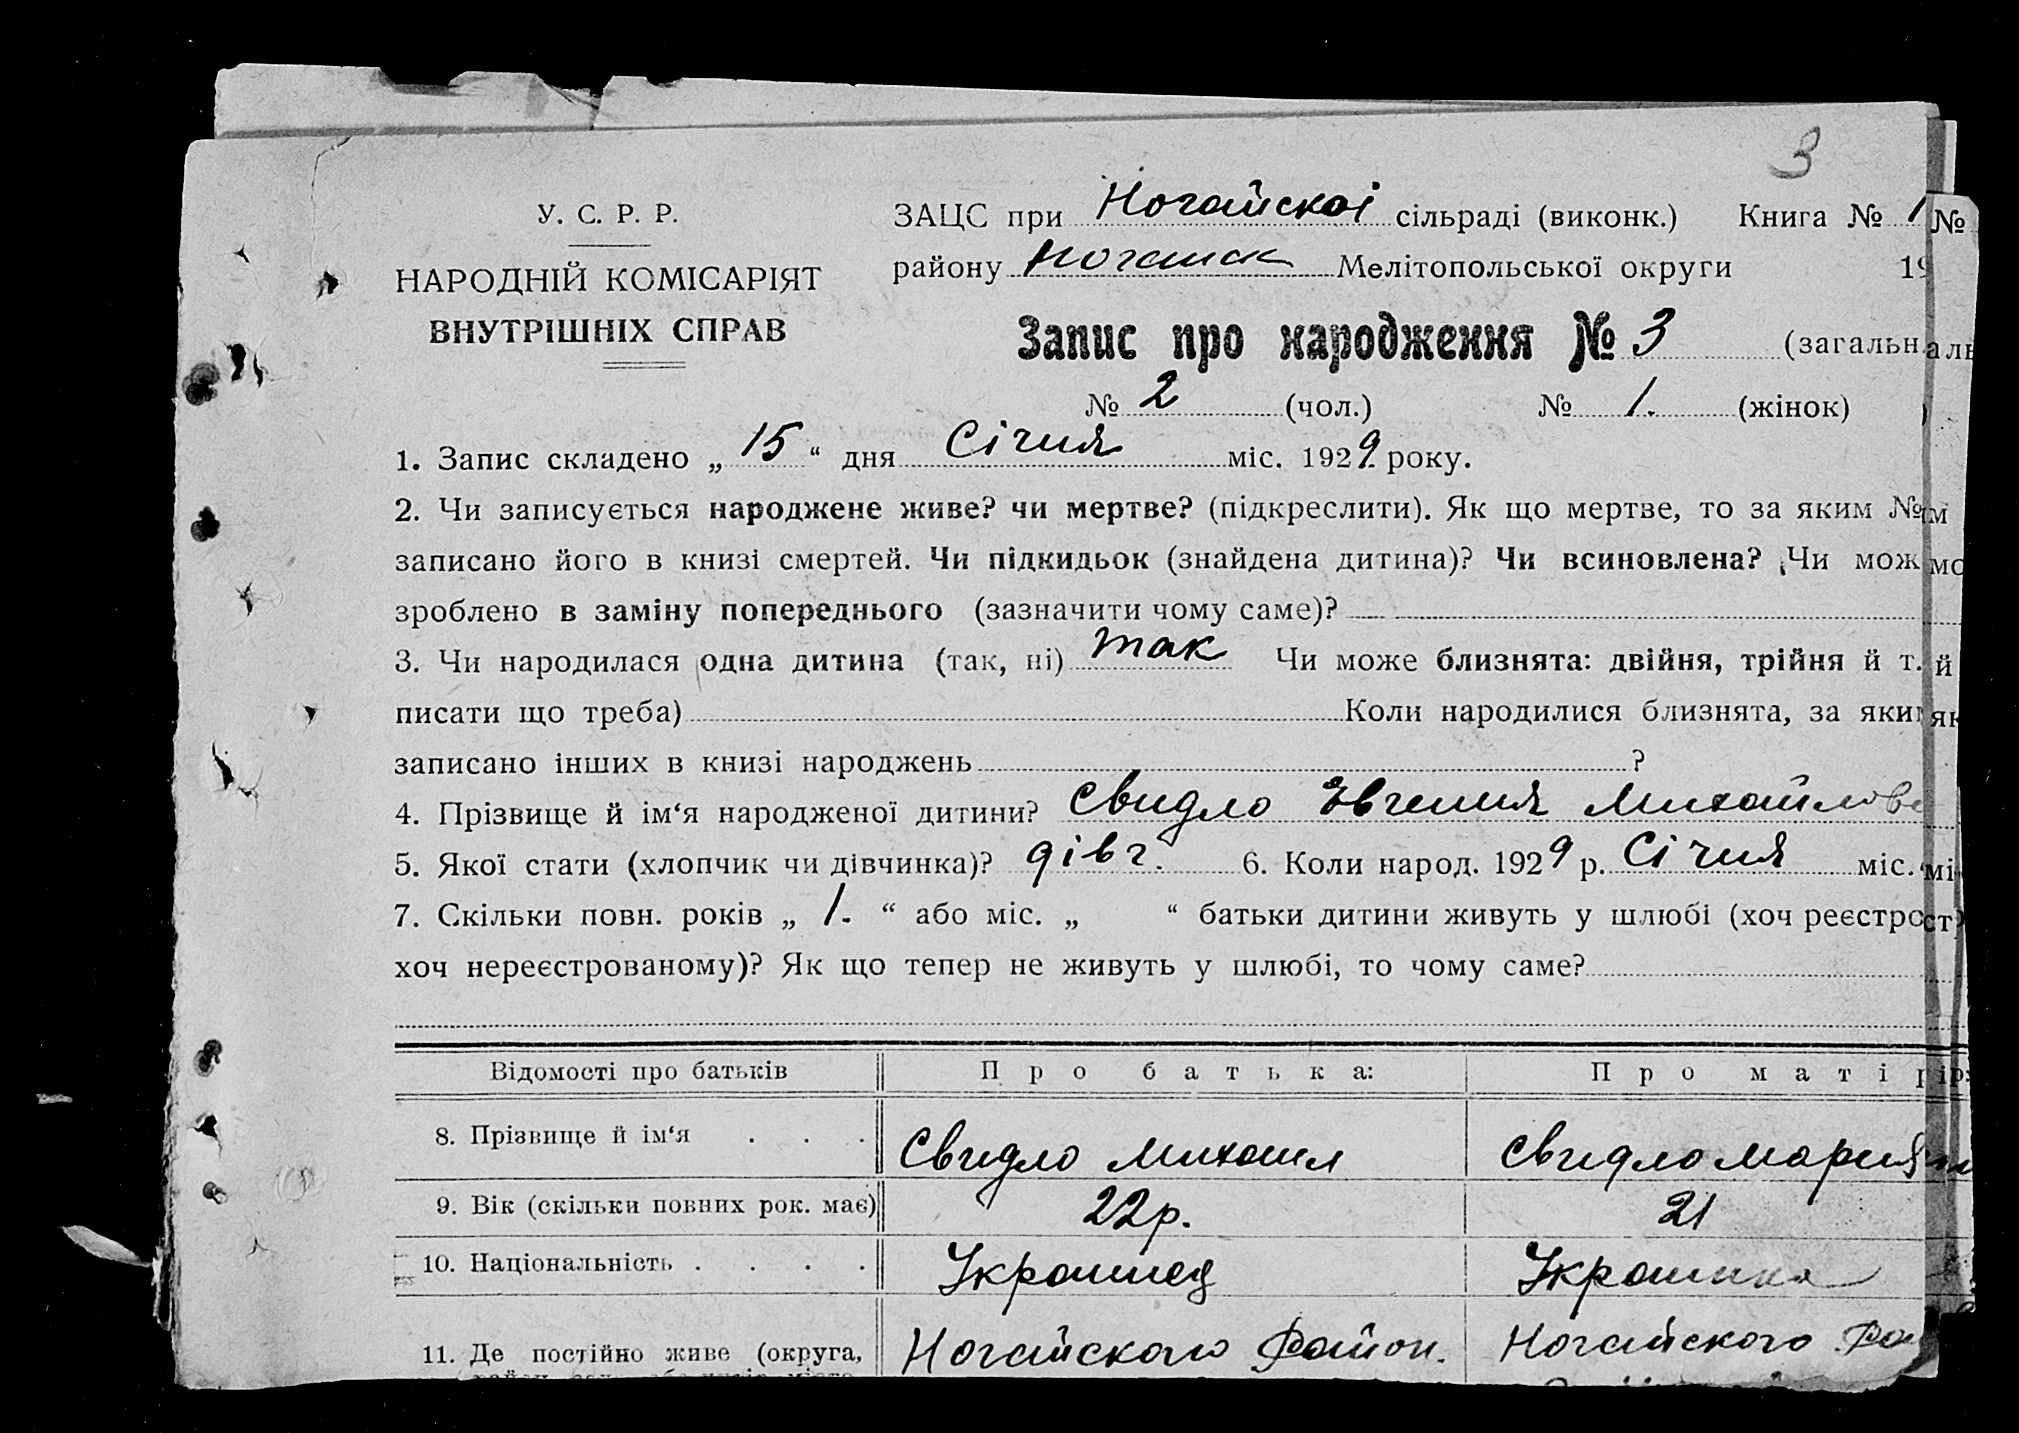 3
У. С. Р. Р.
НАРОДНІЙ КОМІСАРІЯТ
ВНУТРІШНІХ СПРАВ
ЗАЦС при Ногайскоі сільраді (виконк.) Книга № 1 №
району Ногайск Мелітопольської округи 19
Запис про народження № 3 (загальн
№ 2 (чол.) № 1. (жінок)
1. Запис складено „ 15 “ дня Січня міс. 1929 року.
2. Чи записується народжене живе? чи мертве? (підкреслити). Як що мертве, то за яким №
записано його в книзі смертей. Чи підкидьок (знайдена дитина)? Чи всиновлена? Чи мож
зроблено в заміну попереднього (зазначити чому саме)?
3. Чи народилася одна дитина (так, ні) так Чи може близнята: двійня, трійня й т.
писати що треба) Коли народилися близнята, за яким
записано інших в книзі народжень ?
4. Прізвище й ім‘я народженої дитини? Свидло Евгения Михайлов
5. Якої стати (хлопчик чи дівчинка)? дівч. 6. Коли народ. 1929 р. Січня міс.
7. Скільки повн. років „ 1. “ або міс. „ “ батьки дитини живуть у шлюбі (хоч реєстро
хоч нереєстрованому)? Як що тепер не живуть у шлюбі, то чому саме?
Відомості про батьків Про батька: Про матір
8. Прізвище й ім‘я . . . Свидло Михаил Свидло Мария
9. Вік (скільки повних рок. має) 22р. 21
10. Національність . . . . Украинец Украинка
11. Де постійно живе (округа, Ногайского Район. Ногайского Рай